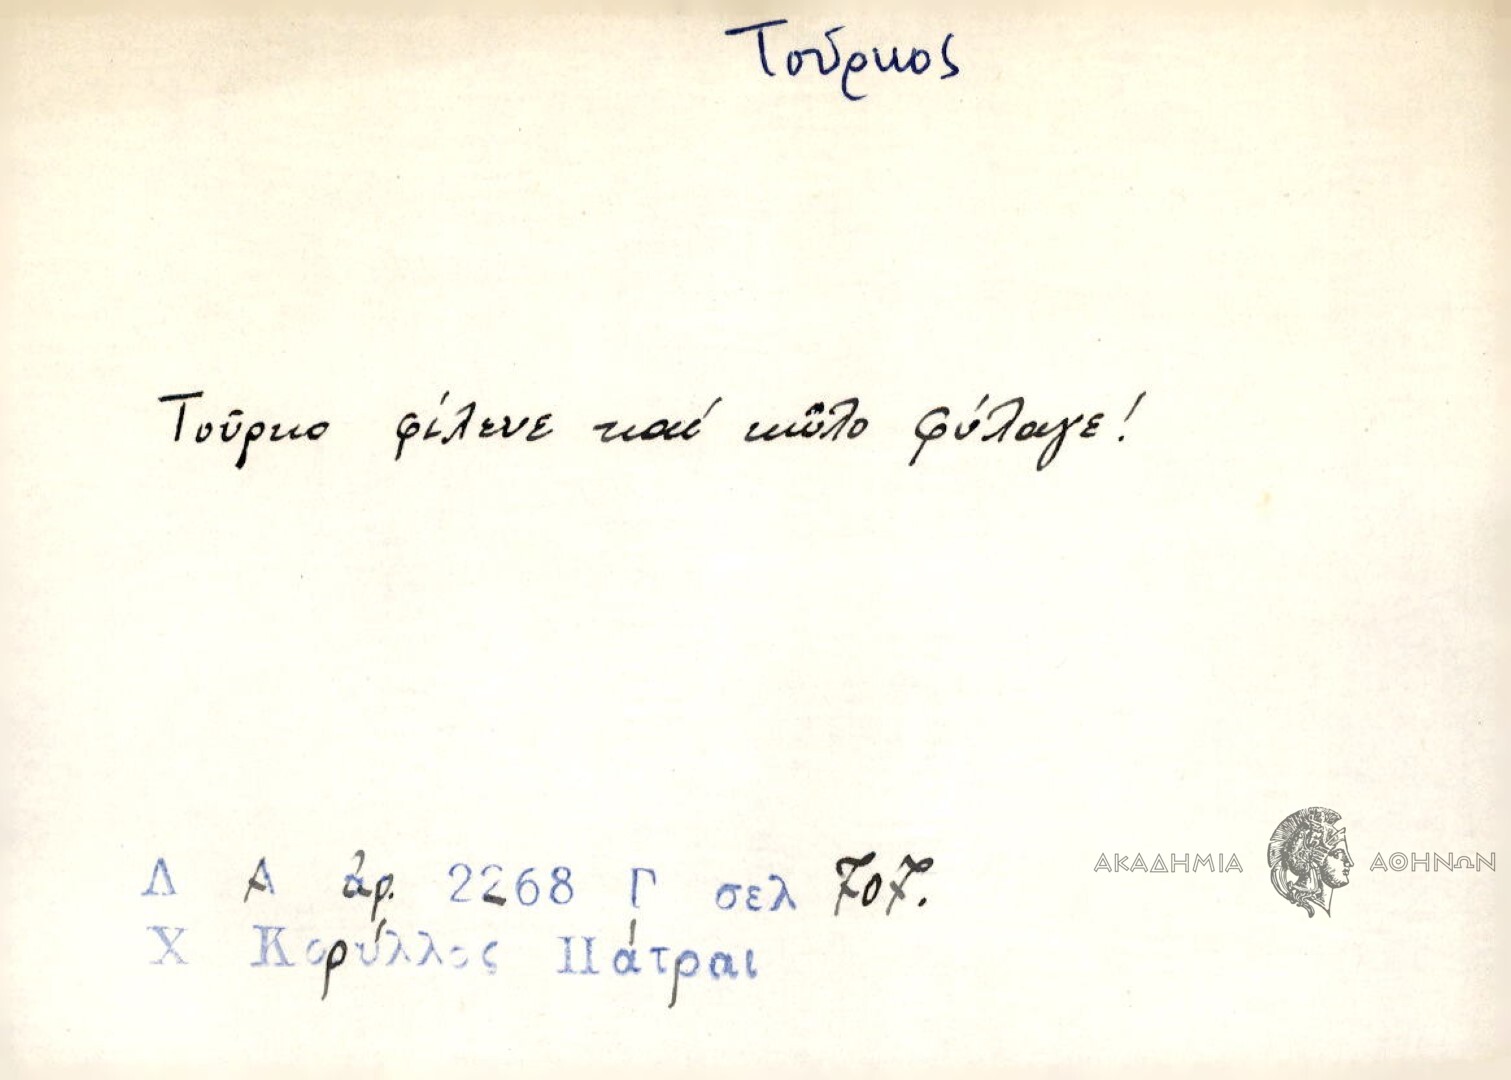 Τούρκος
Τοῦρκο φίλενε καί κῶλο φύλαγε!
Λ Α ἀρ. 2268 Γ σελ 707.
Χ Κορύλλος Πάτραι
ΑΚΑΔΗΜΙΑ ΑΘΗΝΩΝ